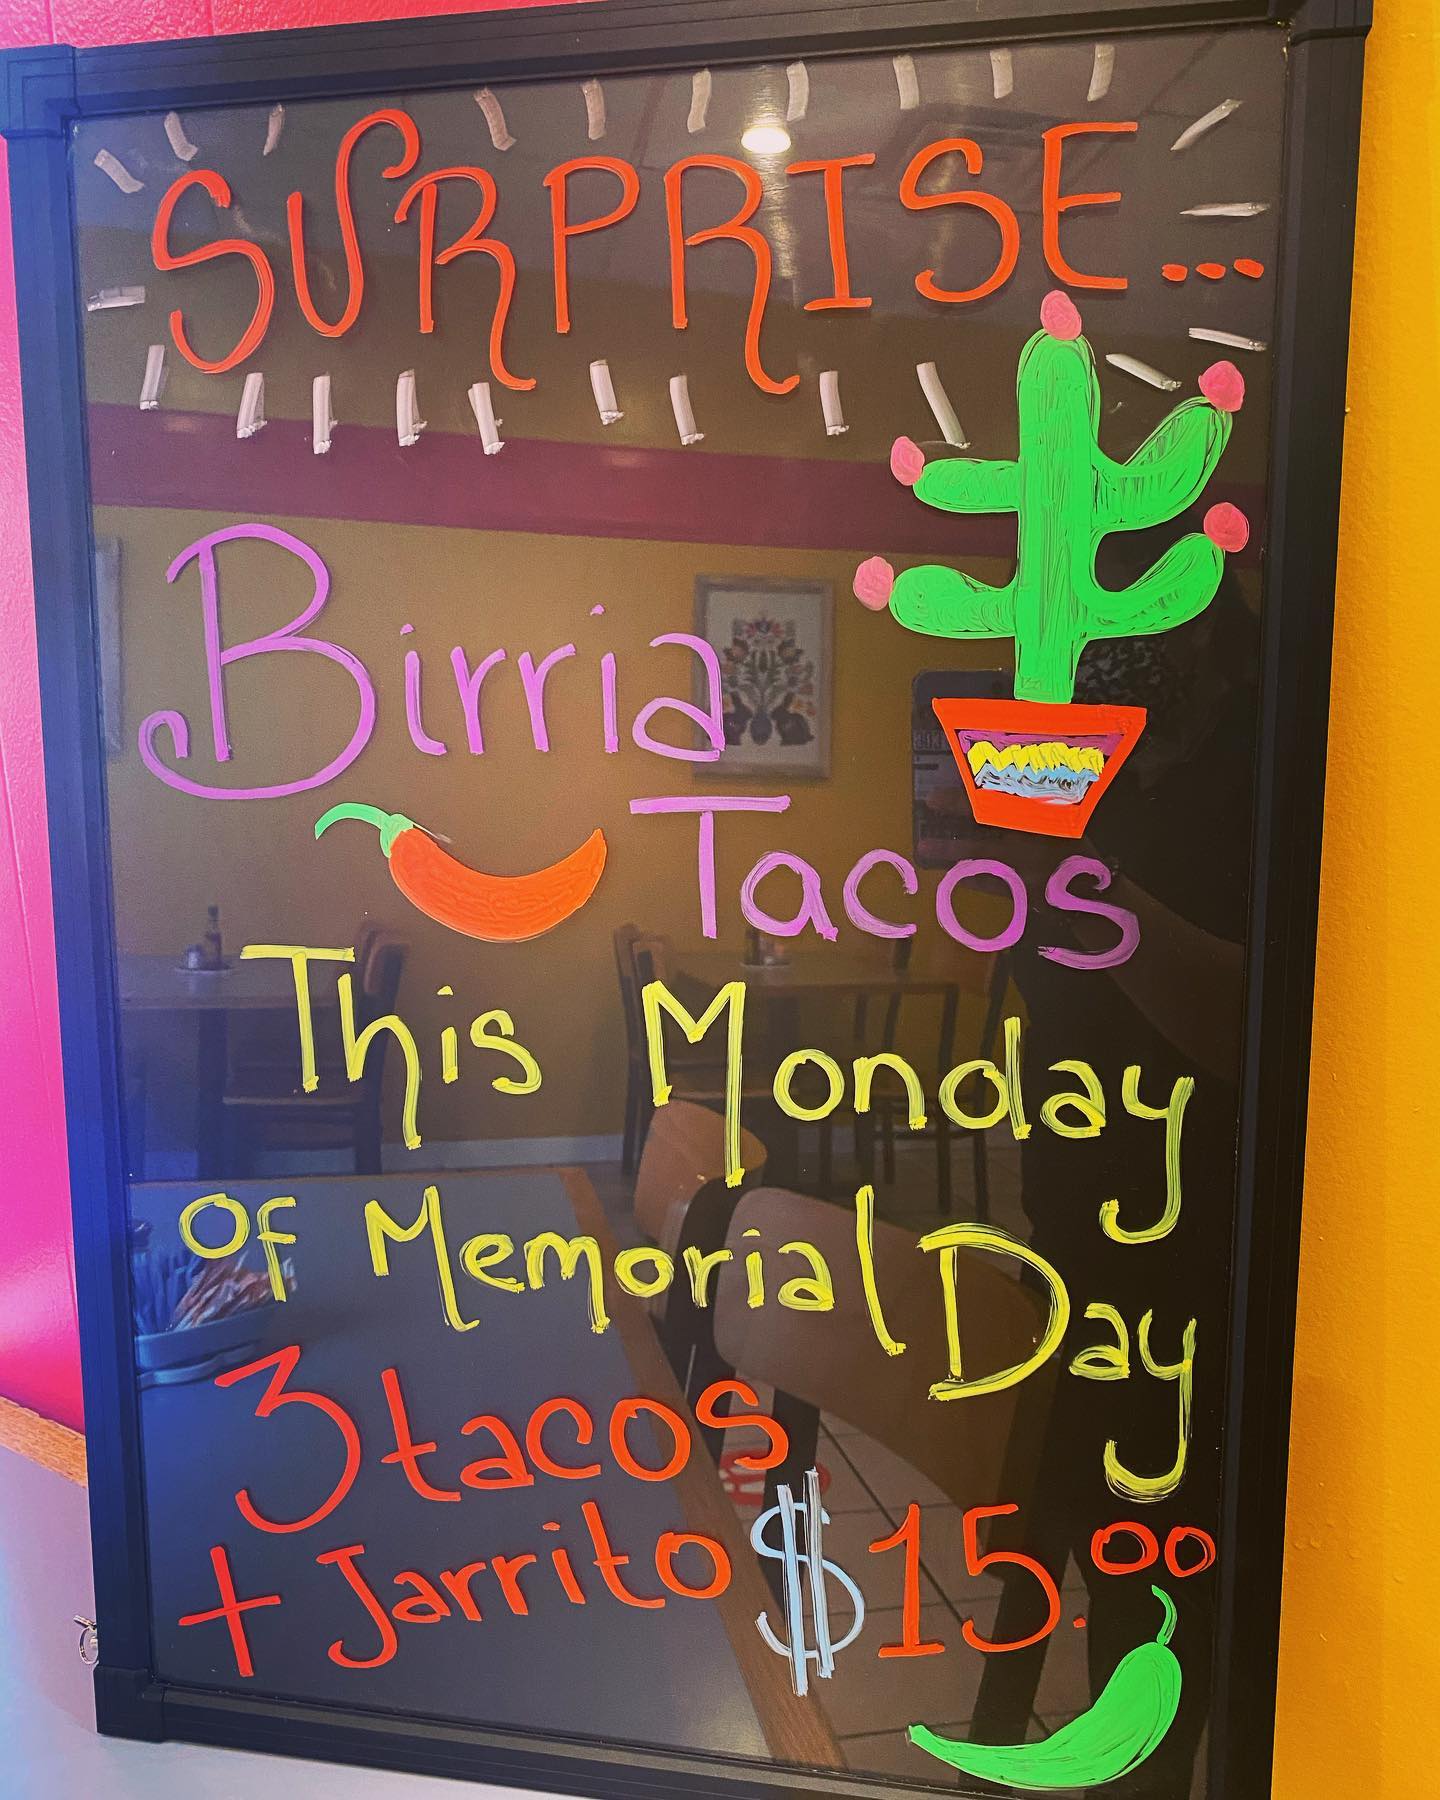 SURPRISE...
Birria
Tacos
This Monday
of Memorial Day
3 tacos
+ Jarrito $15.00